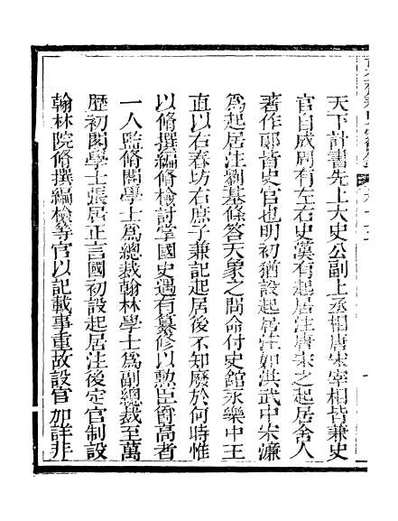 天下計書先上太史公副上丞相唐宋宰相皆兼史
官自成周有左右史漢有起居注唐宋之起居舍人
著作郎皆史官也明初猶設起居注如洪武中宋濂
為起居注劉基條答天象之問命付史館永樂中王
直以右春坊右庶子兼記起居後不知廢於何時惟
以脩撰編脩檢討掌國史遇有纂修以勲臣銜高者
一人監脩閣學士為總裁翰林學士為副總裁至萬
歴初閣學士張居正言國初設起居注後定官制設
翰林院脩撰編檢等官以記載事重故設官加詳非